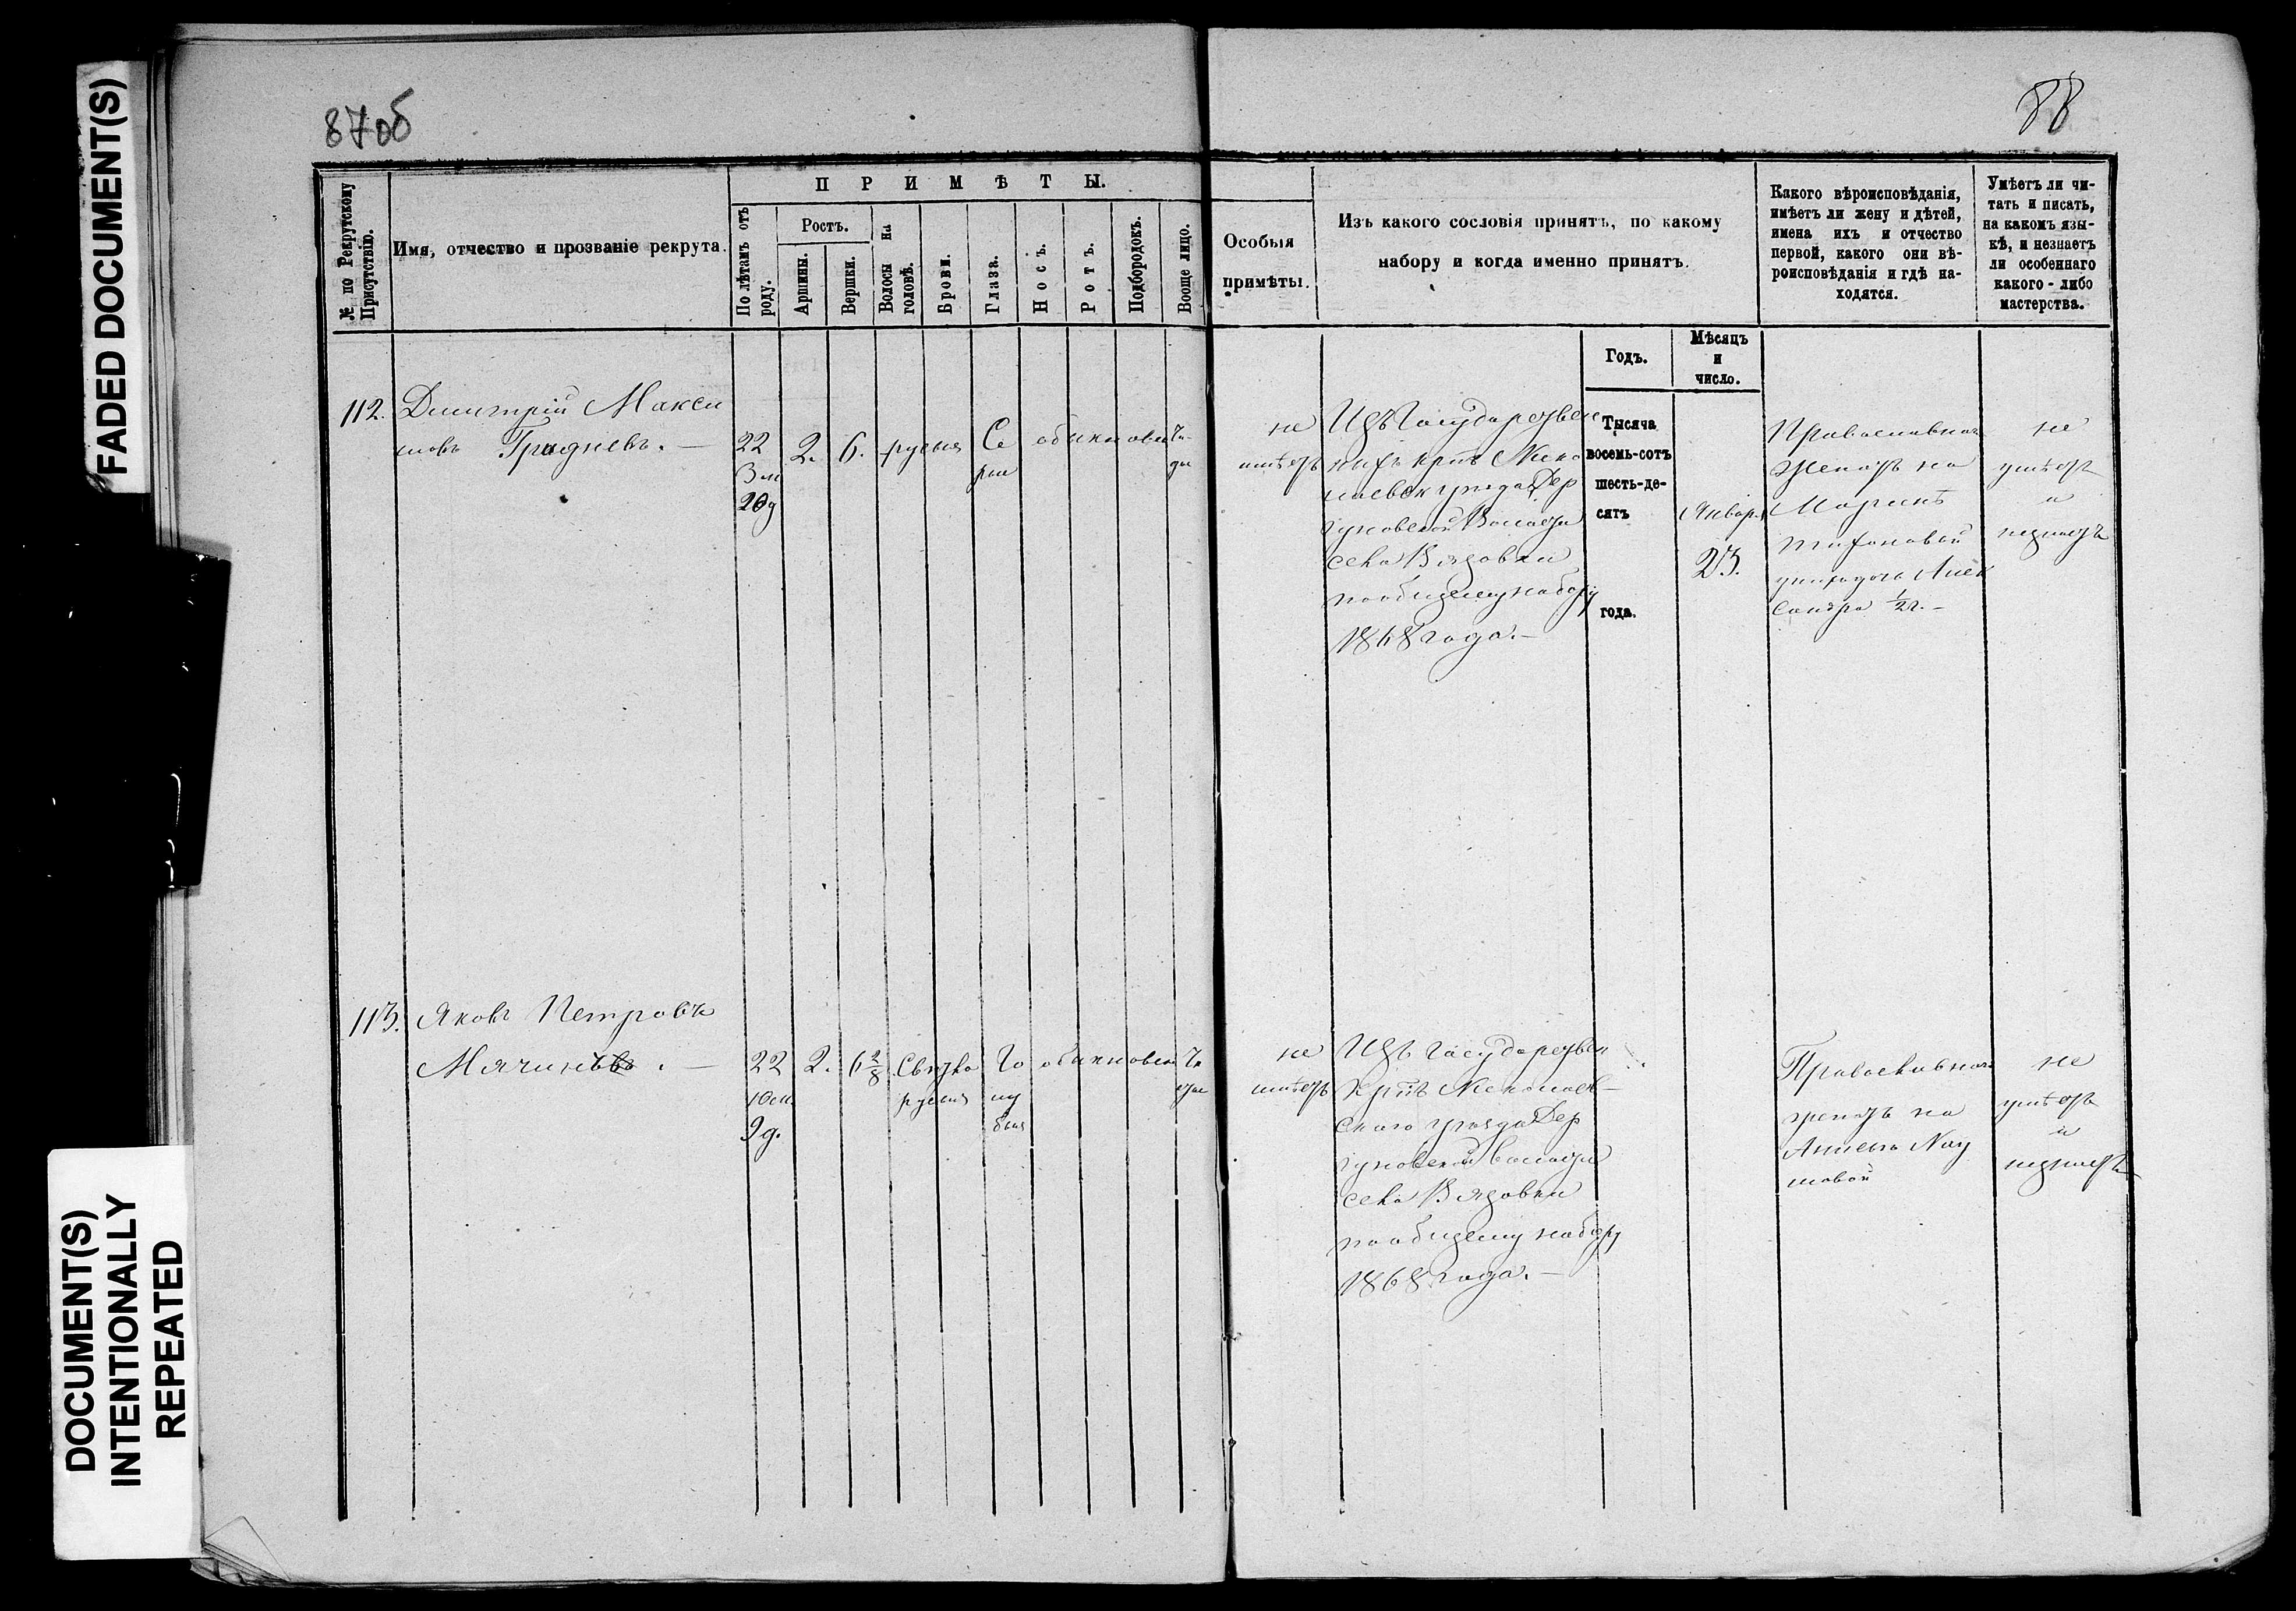 FADED DOCUMENT(S)
DOCUMENT(S)
INTENTIONALLY
REPEATED
87об
88
№ по Рекрутскому
Присутствію.
Имя, отчество и прозваніе рекрута.
ПРИМѢТЫ.
По лѣтамъ отъ
роду.
Ростъ.
Аршины.
Вершки.
Волосы на
головѣ.
Брови.
Глаза.
Носъ.
Ротъ.
Подбородокъ.
Вооще лицо.
Особыя
примѣты.
Изъ какого сословія принятъ, по какому
набору и когда именно принятъ.
Какого вѣроисповѣданія,
имѣетъ ли жену и дѣтей,
имена ихъ и отчество
первой, какого они вѣ-
роисповѣданія и гдѣ на-
ходятся.
Умѣетъ ли чи-
тать и писать,
на какомъ язы-
кѣ, и незнаетъ
ли особеннаго
какого-либо
мастерства.
Годъ.
Мѣсяцъ
и
число.
112.
Димитрій Макси
мовъ Гридневъ. —
22
3 м
20д
2.
6.
русыя
Се
рые
обыкновен
Чи-
сто
не
имѣетъ
Изъ Государствен
ныхъ крпъ Нико
лаевск уѣзда Дер
гуновской Волости
села Вязовки
по общему набору
1868 года. —
Тысяча
восемь-сотъ
шесть-де-
сятъ
года.
Январ.
23.
Православнаго
женатъ на
Маринѣ
Тихоновой
у нихъ дочь Алек
сандра 1/2 г. —
не
умѣетъ
и
незнаетъ
113.
Яковъ Петровъ
Мячинъ. —
22
10 м.
9 д.
2.
6 2/8
Свѣтло
русыя
Го
лу
быя
обыкновен
Чи
стое
не
имѣетъ
Изъ Государствен
Крпъ Николаев-
скаго уѣзда Дер
гуновской волости
села Вязовки
по общему набору
1868 года. —
Православнаго
женатъ на
Анисьѣ Нау
мовой
не
умѣетъ
и
незнаетъ